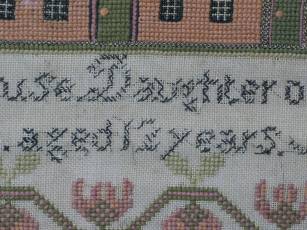 use Daughter o
. aged 12 years.